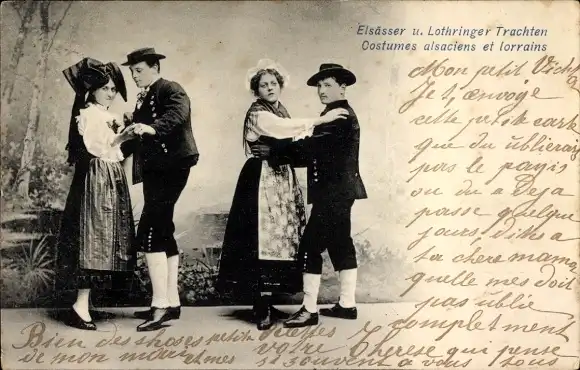 Elsässer u. Lothringer Trachten
Costumes alsaciens et lorrains
Mon petit
Je t'envoge
cette petite carte
que du ûblieray
pas le pagis
ou du a deja
passe quelque
jours, dites a
ta chere mama
quelle mes doit
pas ublie
complet ment
Bien des shoses petit
de mon votre Therese qui pense
si souvent a vous tous